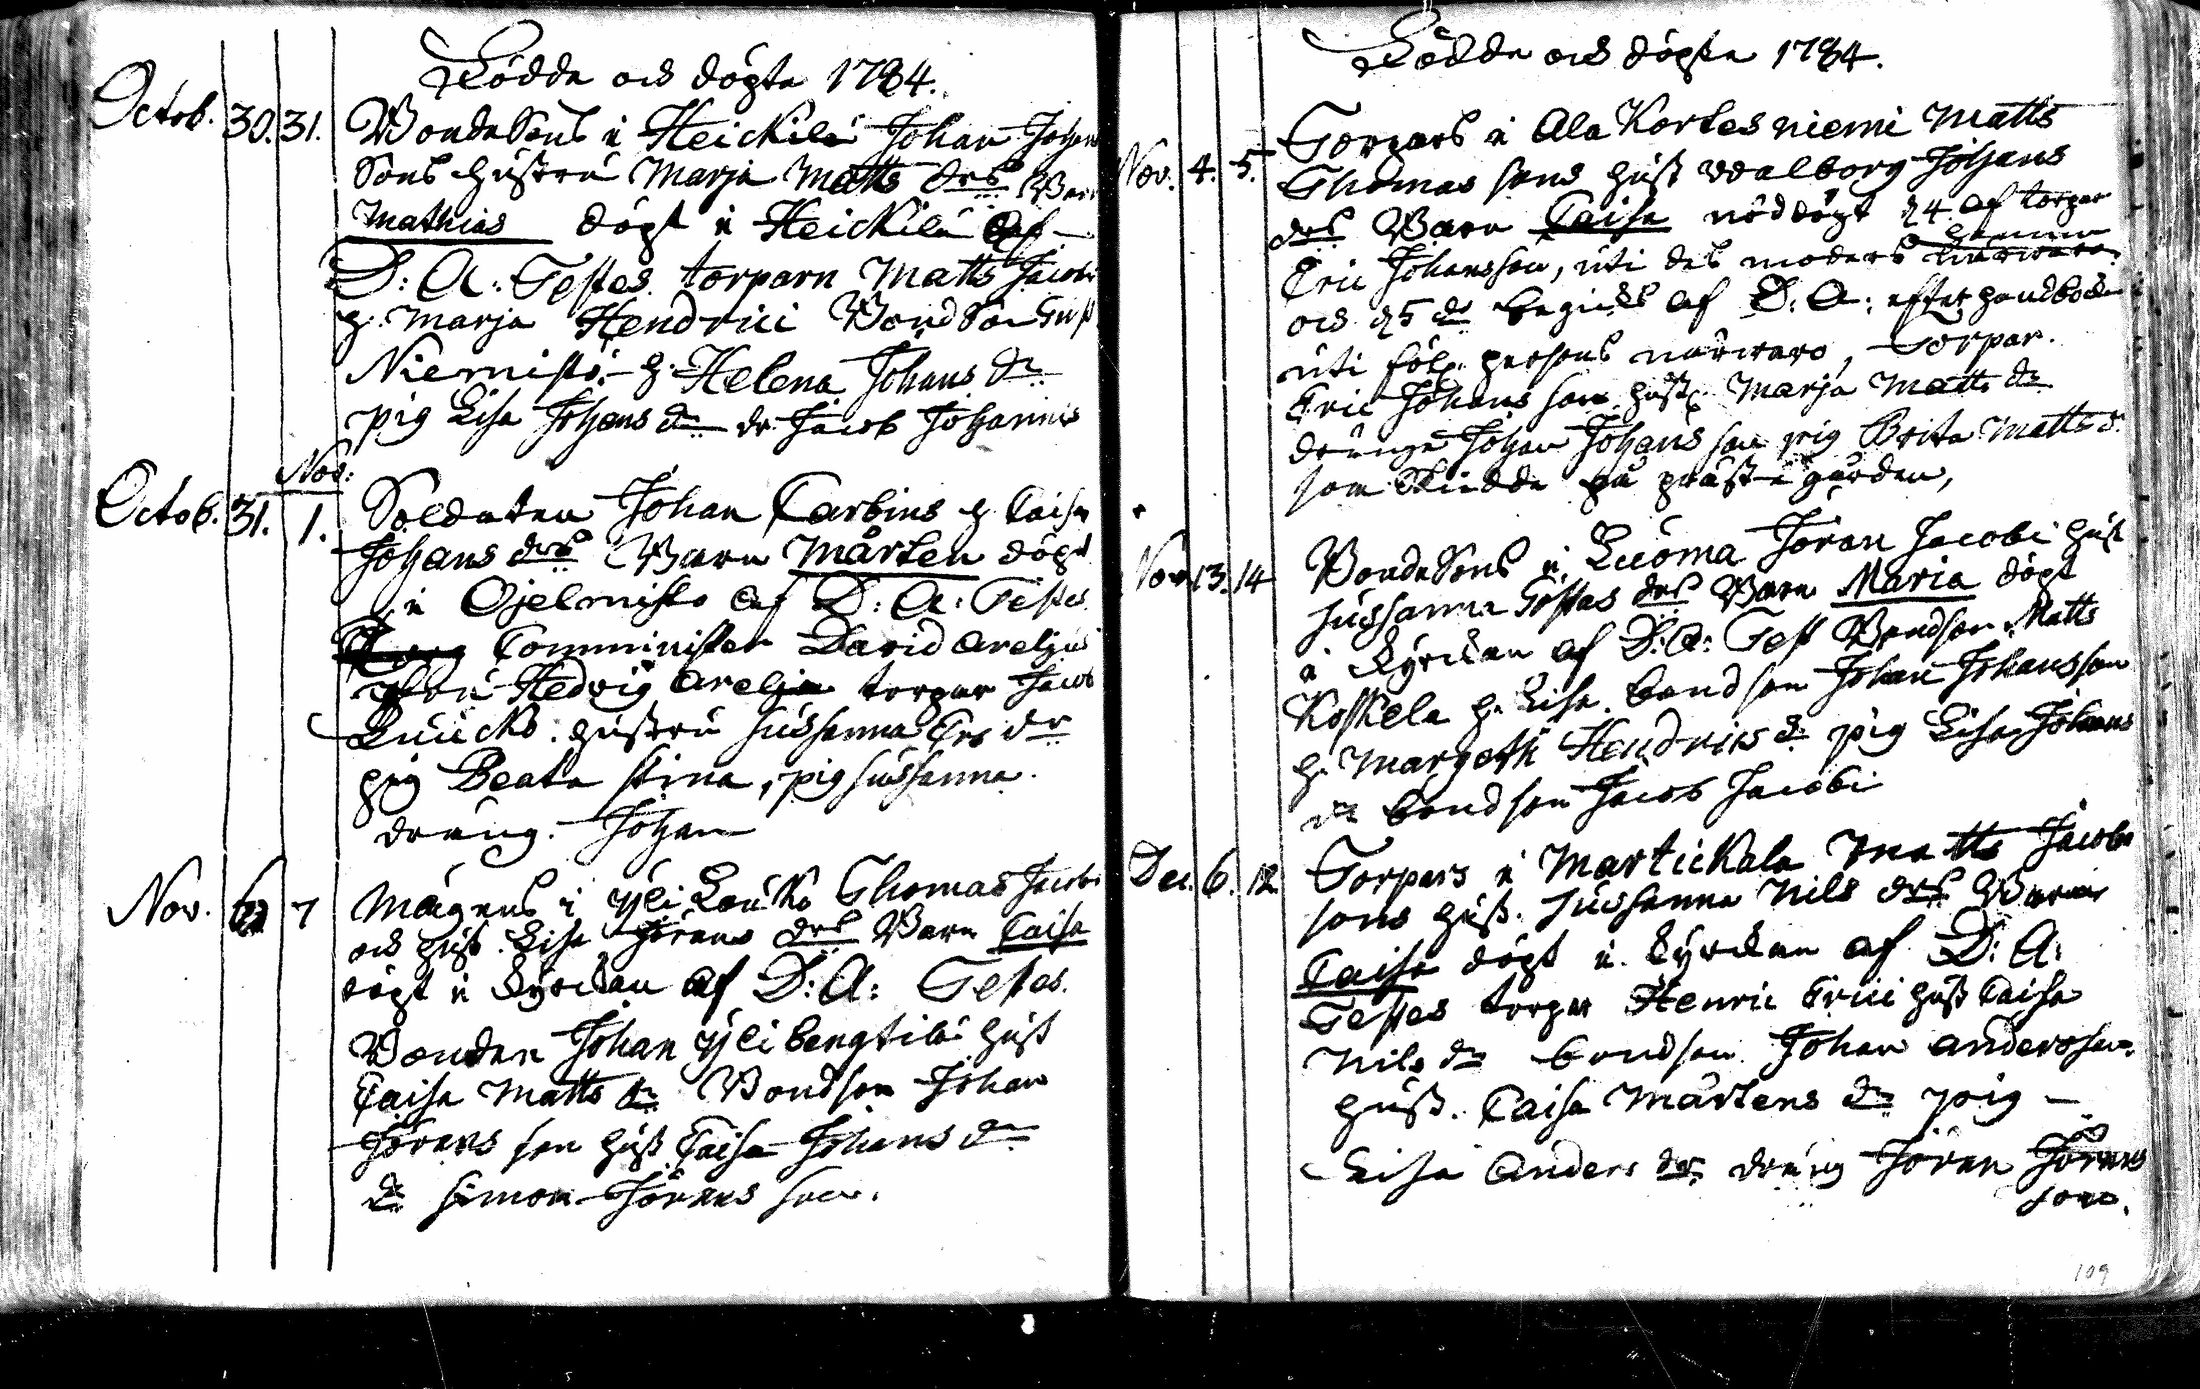 Födde och döpte 1784.
Octob. 30. 31. Bondesons i Heickilä Johan Johan
Sons hustru Marja Matts drs Barn
Mathias döpt i Heickilä af
D: A: Testes torparn Matts Jacobi
h. Marja Hendrici Bondson Gust
Niemistö h. Helena Johans dr
pig Lisa Johans dr dr Jacob Johannis
Nov:
Octob. 31. 1. Soldaten Johan Carbins h Caisa
Johans drs Barn Mårten döpt
i Ojelmisto af D: A: Testes
Comminister David Areljus
fru Hedvig Arelia torpar Jacob
Luucko hustru Sussanna Ers dr
pig Beata Stina, pig Sussanna
dräng. Johan
Nov. 6 7 Mågens i Yli Lauko Thomas Jacobs
och hust Lisa Jörans drs Barn Caisa
döpt i Kyrckan af D: A: Testes.
Bonden Johan Yli bengtilä hust
Caisa Matts dr Bondson Johan
Jörens son hust Caisa Johans dr
dr Simon Jörens son.
Födde och döpte 1784.
Nov. 4. 5. Torpars i Ala Kortes niemi Matts
Thomas sons hust Walborg Johans
drs Barn Caisa nöddöpt d 4 af torpar
Eric Johansson, uti des moders
och d 5 begicks af D. A: efter handboken
uti följ. persons närwaro, Torpar.
Eric Johans son hust. Marja Matts dr
dränge Johan Johans son pig Brita Matts d.
som skiedde på prästegården,
Nov. 13. 14 Bondesons i Luoma Jöran Jacobi hust
Sussanna Gostas drs Barn Maria döpt
i Kyrckan af D: A: Test Bondson Matts
Koskela h. Lisa. bondson Johan Johansson
h. Margeth Hendrics d pig Lisa Johans
dr bondson Jacob Jacobi
Dec. 6. 12 Torpars i Martickala Matts Jacobs
sons hust. Sussanna Nils drs Barn
Caisa döpt i Kyrckan af D: A:
Testes torpar Henric Erici hust Caisa
Nils dr bondson Johan Andersson
hust. Caisa Mårtens dr pig
Lisa Anders dr. dräng Jöran Jörens
son.
109